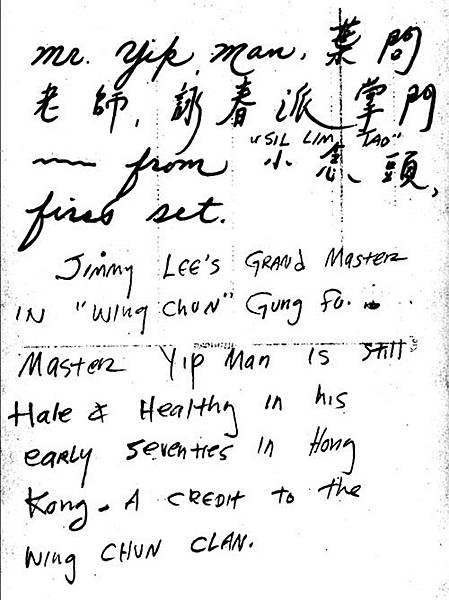 mr. Yip, man, 葉問
老師, 詠春派掌門
"SIL LIM TAO"
~~ from 小念頭,
first set.
Jimmy LEE'S GRANd MASTER
IN "Wing Chun" Gung Fu.
MASTER Yip Man is still
Hale & Healthy in his
early seventies in Hong
Kong - A CREDIT to the
Wing CHUN CLAN.